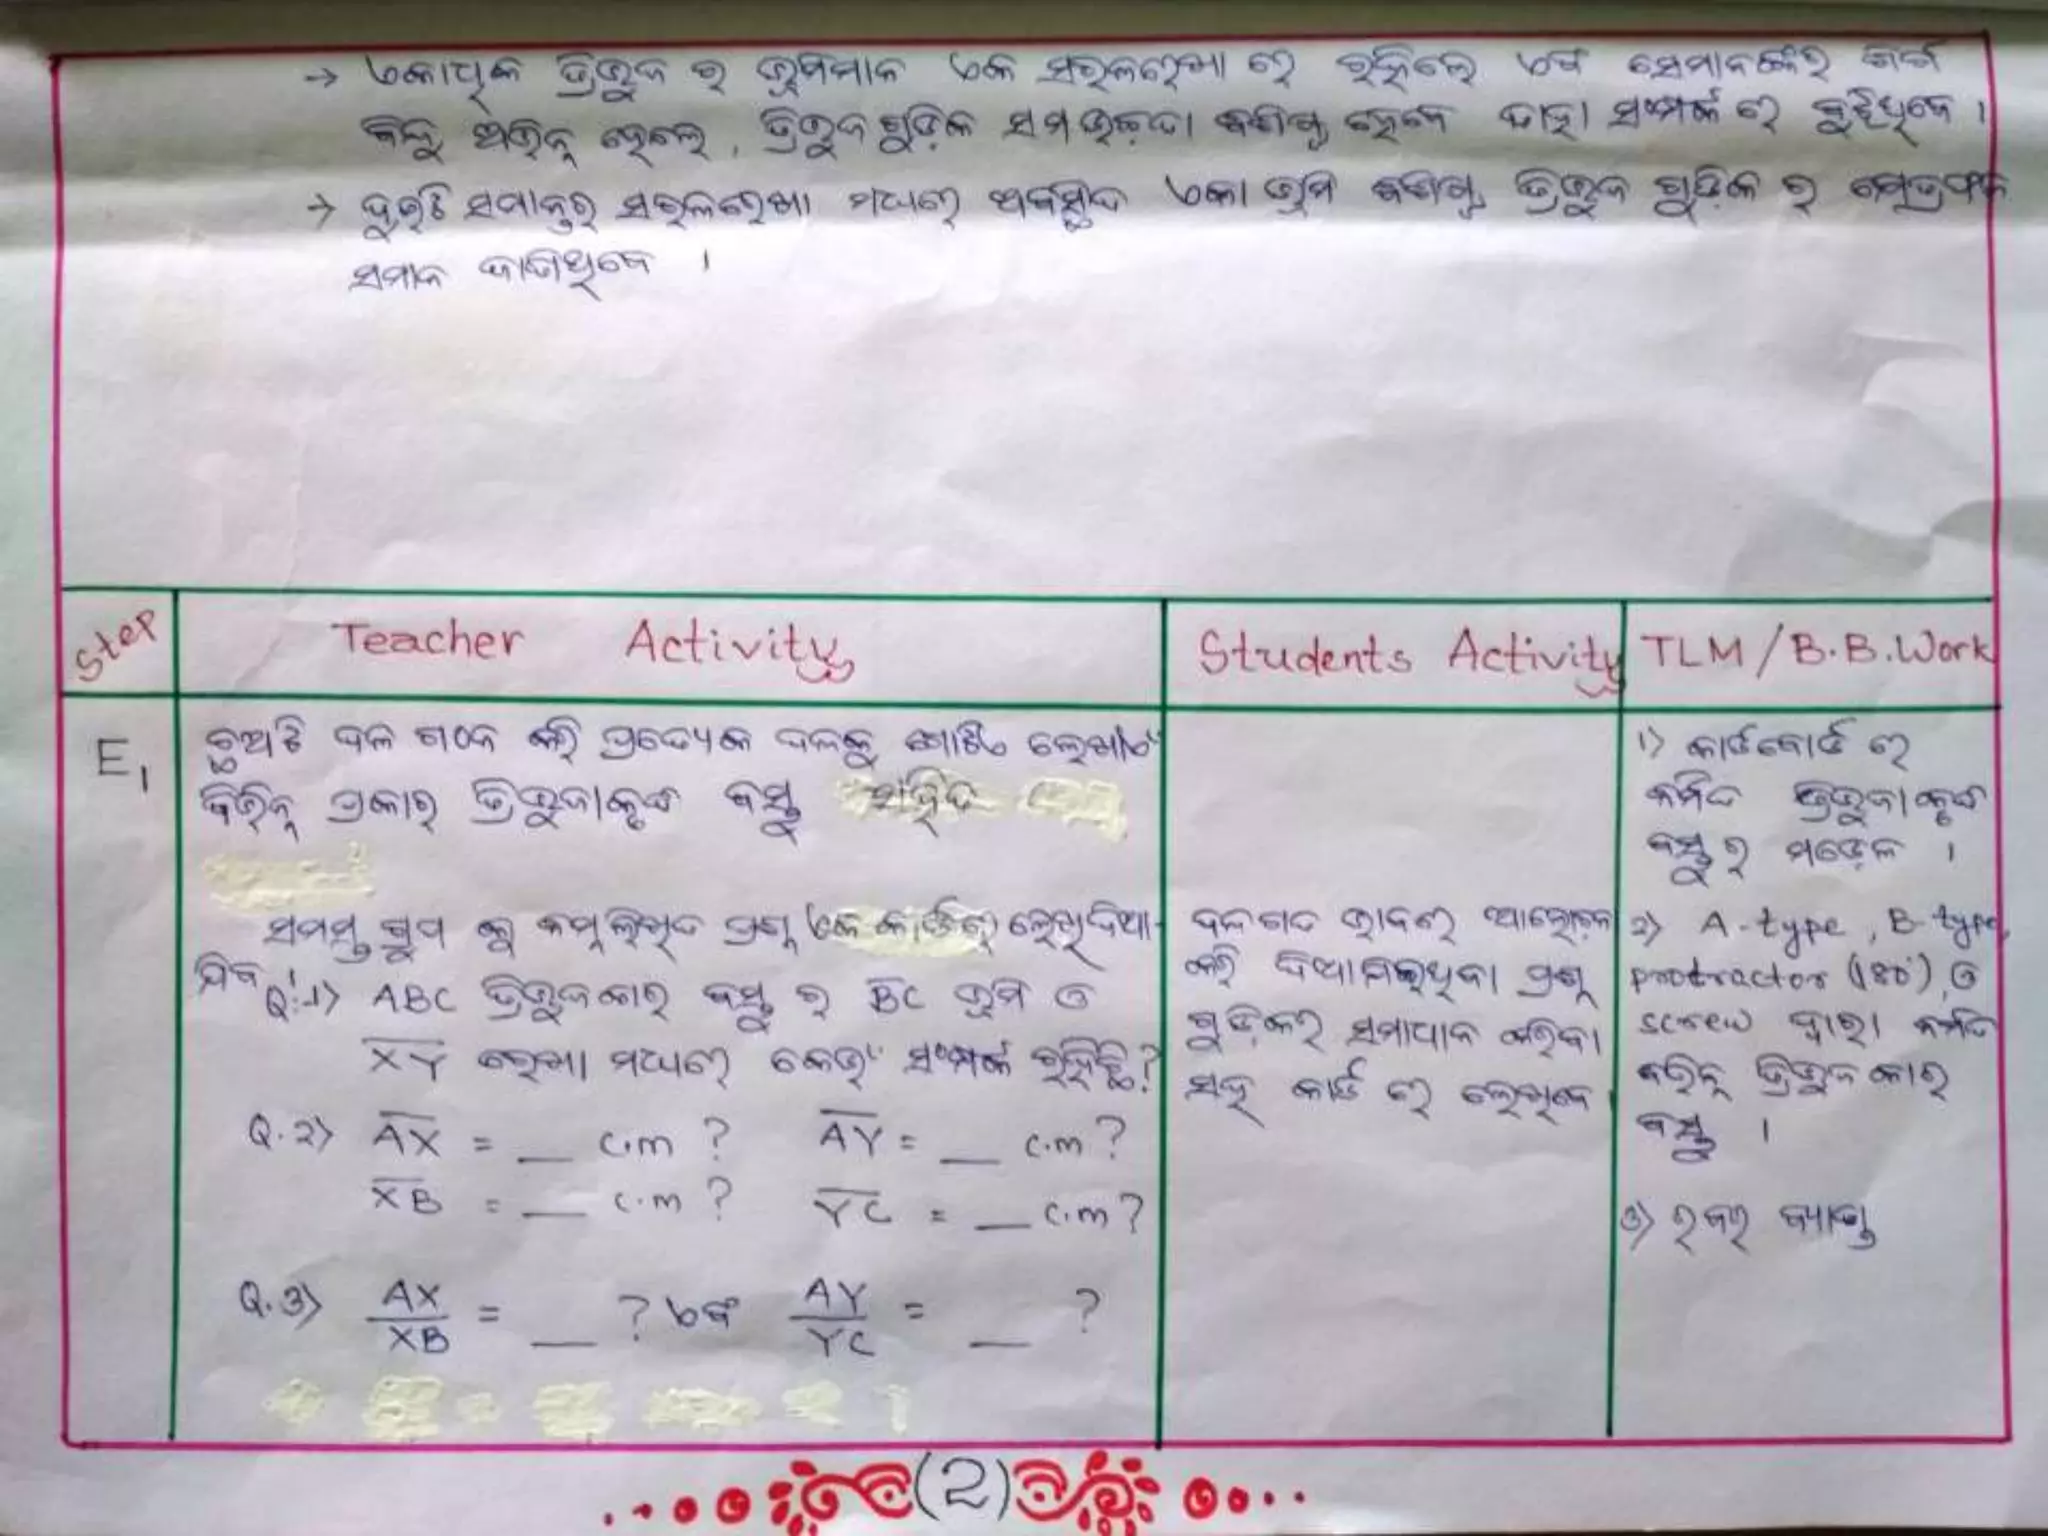 → ଏକାଧିକ ତ୍ରିଭୁଜ ର ଭୂମିମାନ ଏକ ସରଳରେଖା ରେ ରହିଲେ ଏବଂ ସେମାନଙ୍କର ଶୀର୍ଷ
ବିନ୍ଦୁ ଅଭିନ୍ନ ହେଲେ, ତ୍ରିଭୁଜଗୁଡ଼ିକ ସମଉଚ୍ଚତା ବିଶିଷ୍ଟ ହେବେ ତାହା ସଂମ୍ପର୍କ ରେ ବୁଝିଥିବେ ।
→ ଦୁଇଟି ସମାନ୍ତର ସରଳରେଖା ମଧ୍ୟରେ ଅବସ୍ଥିତ ଏକା ଭୂମି ବିଶିଷ୍ଟ ତ୍ରିଭୁଜ ଗୁଡ଼ିକ ର କ୍ଷେତ୍ରଫଳ
ସମାନ ଜାଣିଥିବେ ।
Step
Teacher Activity
Students Activity
TLM / B.B. Work
E1
ଛଅଟି ଦଳ ଗଠନ କରି ପ୍ରତ୍ୟେକ ଦଳକୁ ଗୋଟିଏ ଲେଖାଏଁ
ବିଭିନ୍ନ ପ୍ରକାର ତ୍ରିଭୁଜାକୃତି ବସ୍ତୁ ସହିତ
ସମସ୍ତ ଗ୍ରୁପ କୁ ନିମ୍ନଲିଖିତ ପ୍ରଶ୍ନ ଏକ କାର୍ଡରେ ଲେଖିଦିଆ-
ଯିବ ।
Q.1) ABC ତ୍ରିଭୁଜାକାର ବସ୍ତୁ ର BC ଭୂମି ଓ
XY ରେଖା ମଧ୍ୟରେ କେଉଁ ସଂମ୍ପର୍କ ରହିଛି ?
Q.2) AX = __ c.m ? AY = __ c.m ?
XB = __ c.m ? YC = __ c.m ?
Q.3) AX/XB = __ ? ଏବଂ AY/YC = __ ?
ଦଳଗତ ଭାବରେ ଆଲୋଚନା
କରି ଦିଆଯାଇଥିବା ପ୍ରଶ୍ନ
ଗୁଡ଼ିକର ସମାଧାନ କରିବା
ସହ କାର୍ଡ ରେ ଲେଖିବେ
1) କାର୍ଡବୋର୍ଡ ରେ
ନିର୍ମିତ ତ୍ରିଭୁଜାକୃତି
ବସ୍ତୁ ର ମଡ଼େଳ ।
2) A-type, B-type,
protractor (180°), ଓ
screw ଦ୍ୱାରା ନିର୍ମିତ
ବିଭିନ୍ନ ତ୍ରିଭୁଜାକାର
ବସ୍ତୁ ।
୩) ରବର ବ୍ୟାଣ୍ଡ
(2)